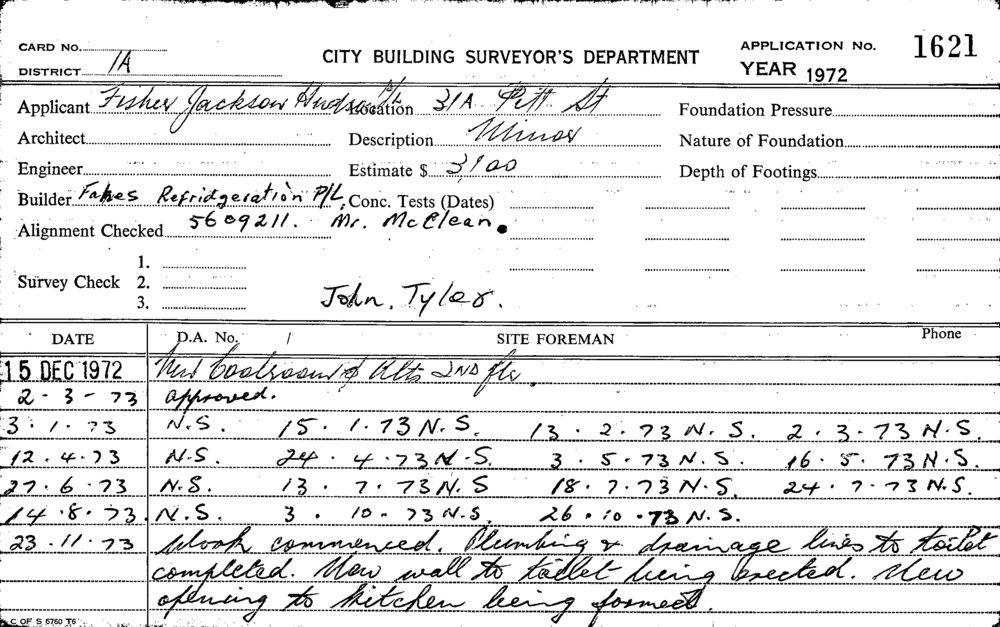 CARD NO. CITY BUILDING SURVEYOR'S DEPARTMENT APPLICATION No. 1621
DISTRICT 1A YEAR 1972
Applicant Fisher Jackson Hudson P/L Location 31A Pitt St Foundation Pressure
Architect Description Minor Nature of Foundation
Engineer Estimate $ 3100 Depth of Footings
Builder Refridgeration P/L, Conc. Tests (Dates)
Alignment Checked 5609211. Mr. McClean.
Survey Check 1.
2.
3. John, Tyler.
DATE D.A. No. / SITE FOREMAN Phone
15 DEC 1972 New Coolroom & Alts 2ND flr.
2-3-73 approved.
3.1.73 N.S. 15.1.73 N.S. 13.2.73 N.S. 2.3.73 N.S.
12.4.73 N.S. 24.4.73 N.S. 3.5.73 N.S. 16.5.73 N.S.
27.6.73 N.S. 13.7.73 N.S 18.7.73 N.S. 24.7.73 N.S.
14.8.73. N.S. 3.10.73 N.S. 26.10.73 N.S.
23.11.73 Work commenced. Plumbing & drainage lines to toilet
completed. New wall to toilet being erected. New
opening to kitchen being formed.
C OF S 6760 T6